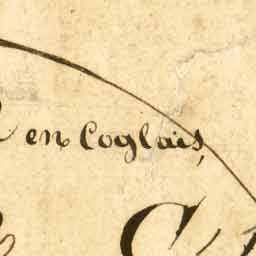 en Coglais,